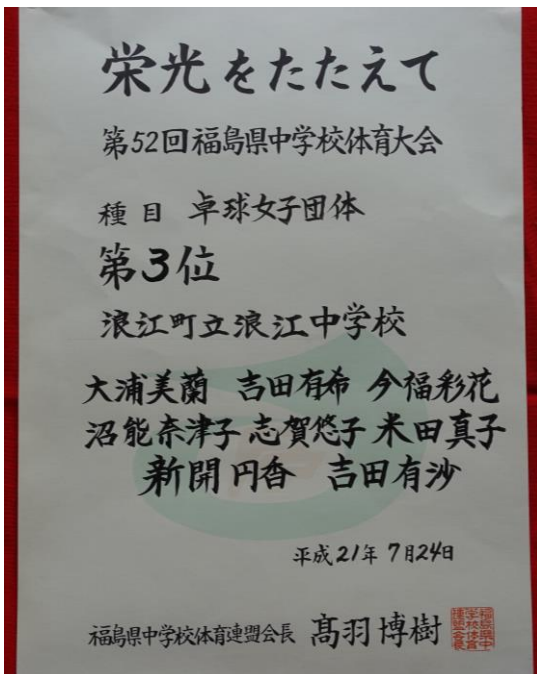 栄光をたたえて
第52回福島県中学校体育大会
種目 卓球女子団体
第3位
浪江町立浪江中学校
大浦美蘭 吉田有希 今福彩花
沼能奈津子 志賀悠子 米田真子
新開円香 吉田有沙
平成21年7月24日
福島県中学校体育連盟会長 髙羽博樹